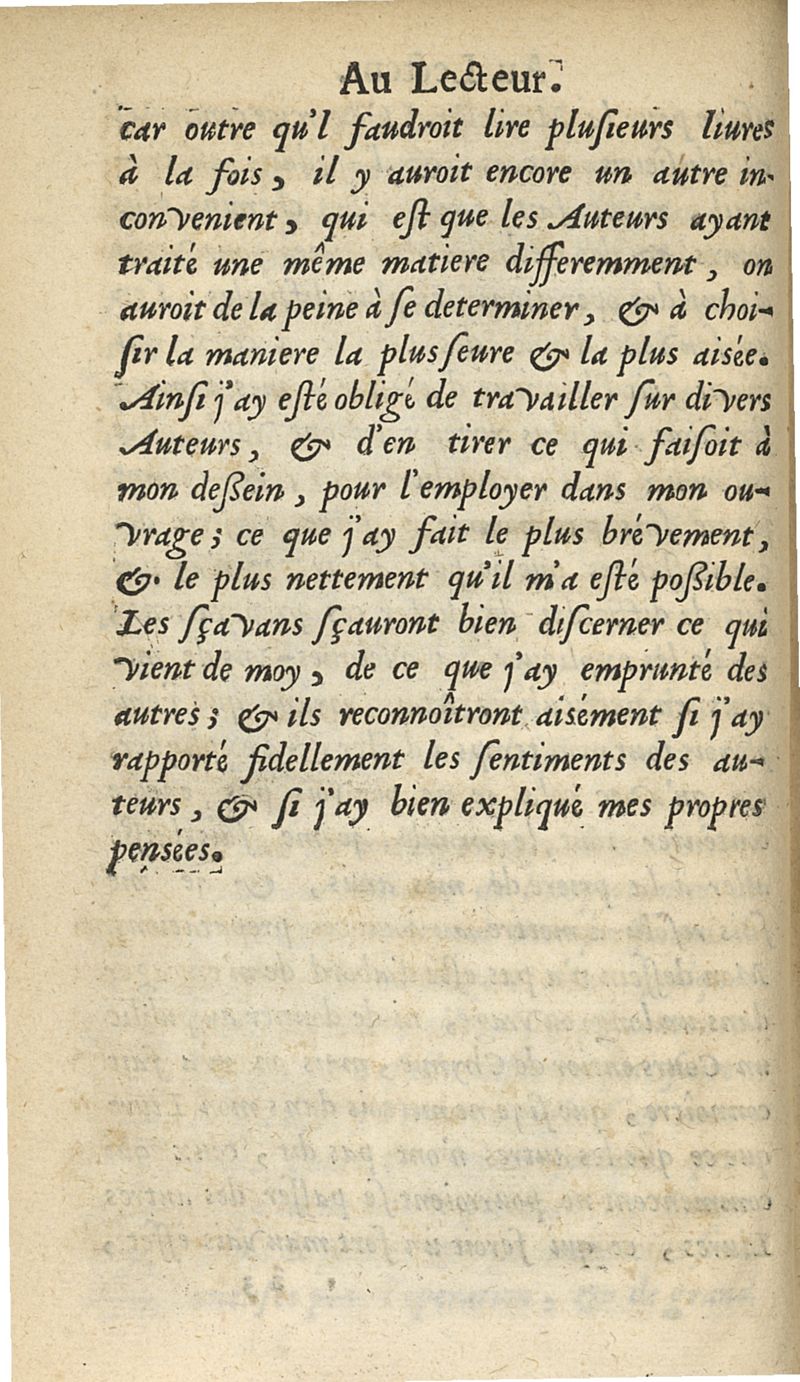 Au Lecteur.
car outre qu'l faudroit lire pluſieurs liures
à la fois, il y auroit encore un autre in-
convenient, qui eſt que les Auteurs ayant
traité une même matiere differemment, on
auroit de la peine à ſe determiner, & à choi-
ſir la maniere la plus ſeure & la plus aisée.
Ainſi j'ay eſté obligé de travailler ſur divers
Auteurs, & d'en tirer ce qui faiſoit à
mon deßein, pour l'employer dans mon ou-
vrage; ce que j'ay fait le plus brévement,
& le plus nettement qu'il m'a eſté poßible.
Les ſçavans ſçauront bien diſcerner ce qui
vient de moy, de ce que j'ay emprunté des
autres; & ils reconnoîtront aisément ſi j'ay
rapporté fidellement les ſentiments des au-
teurs, & ſi j'ay bien expliqué mes propres
pensées.